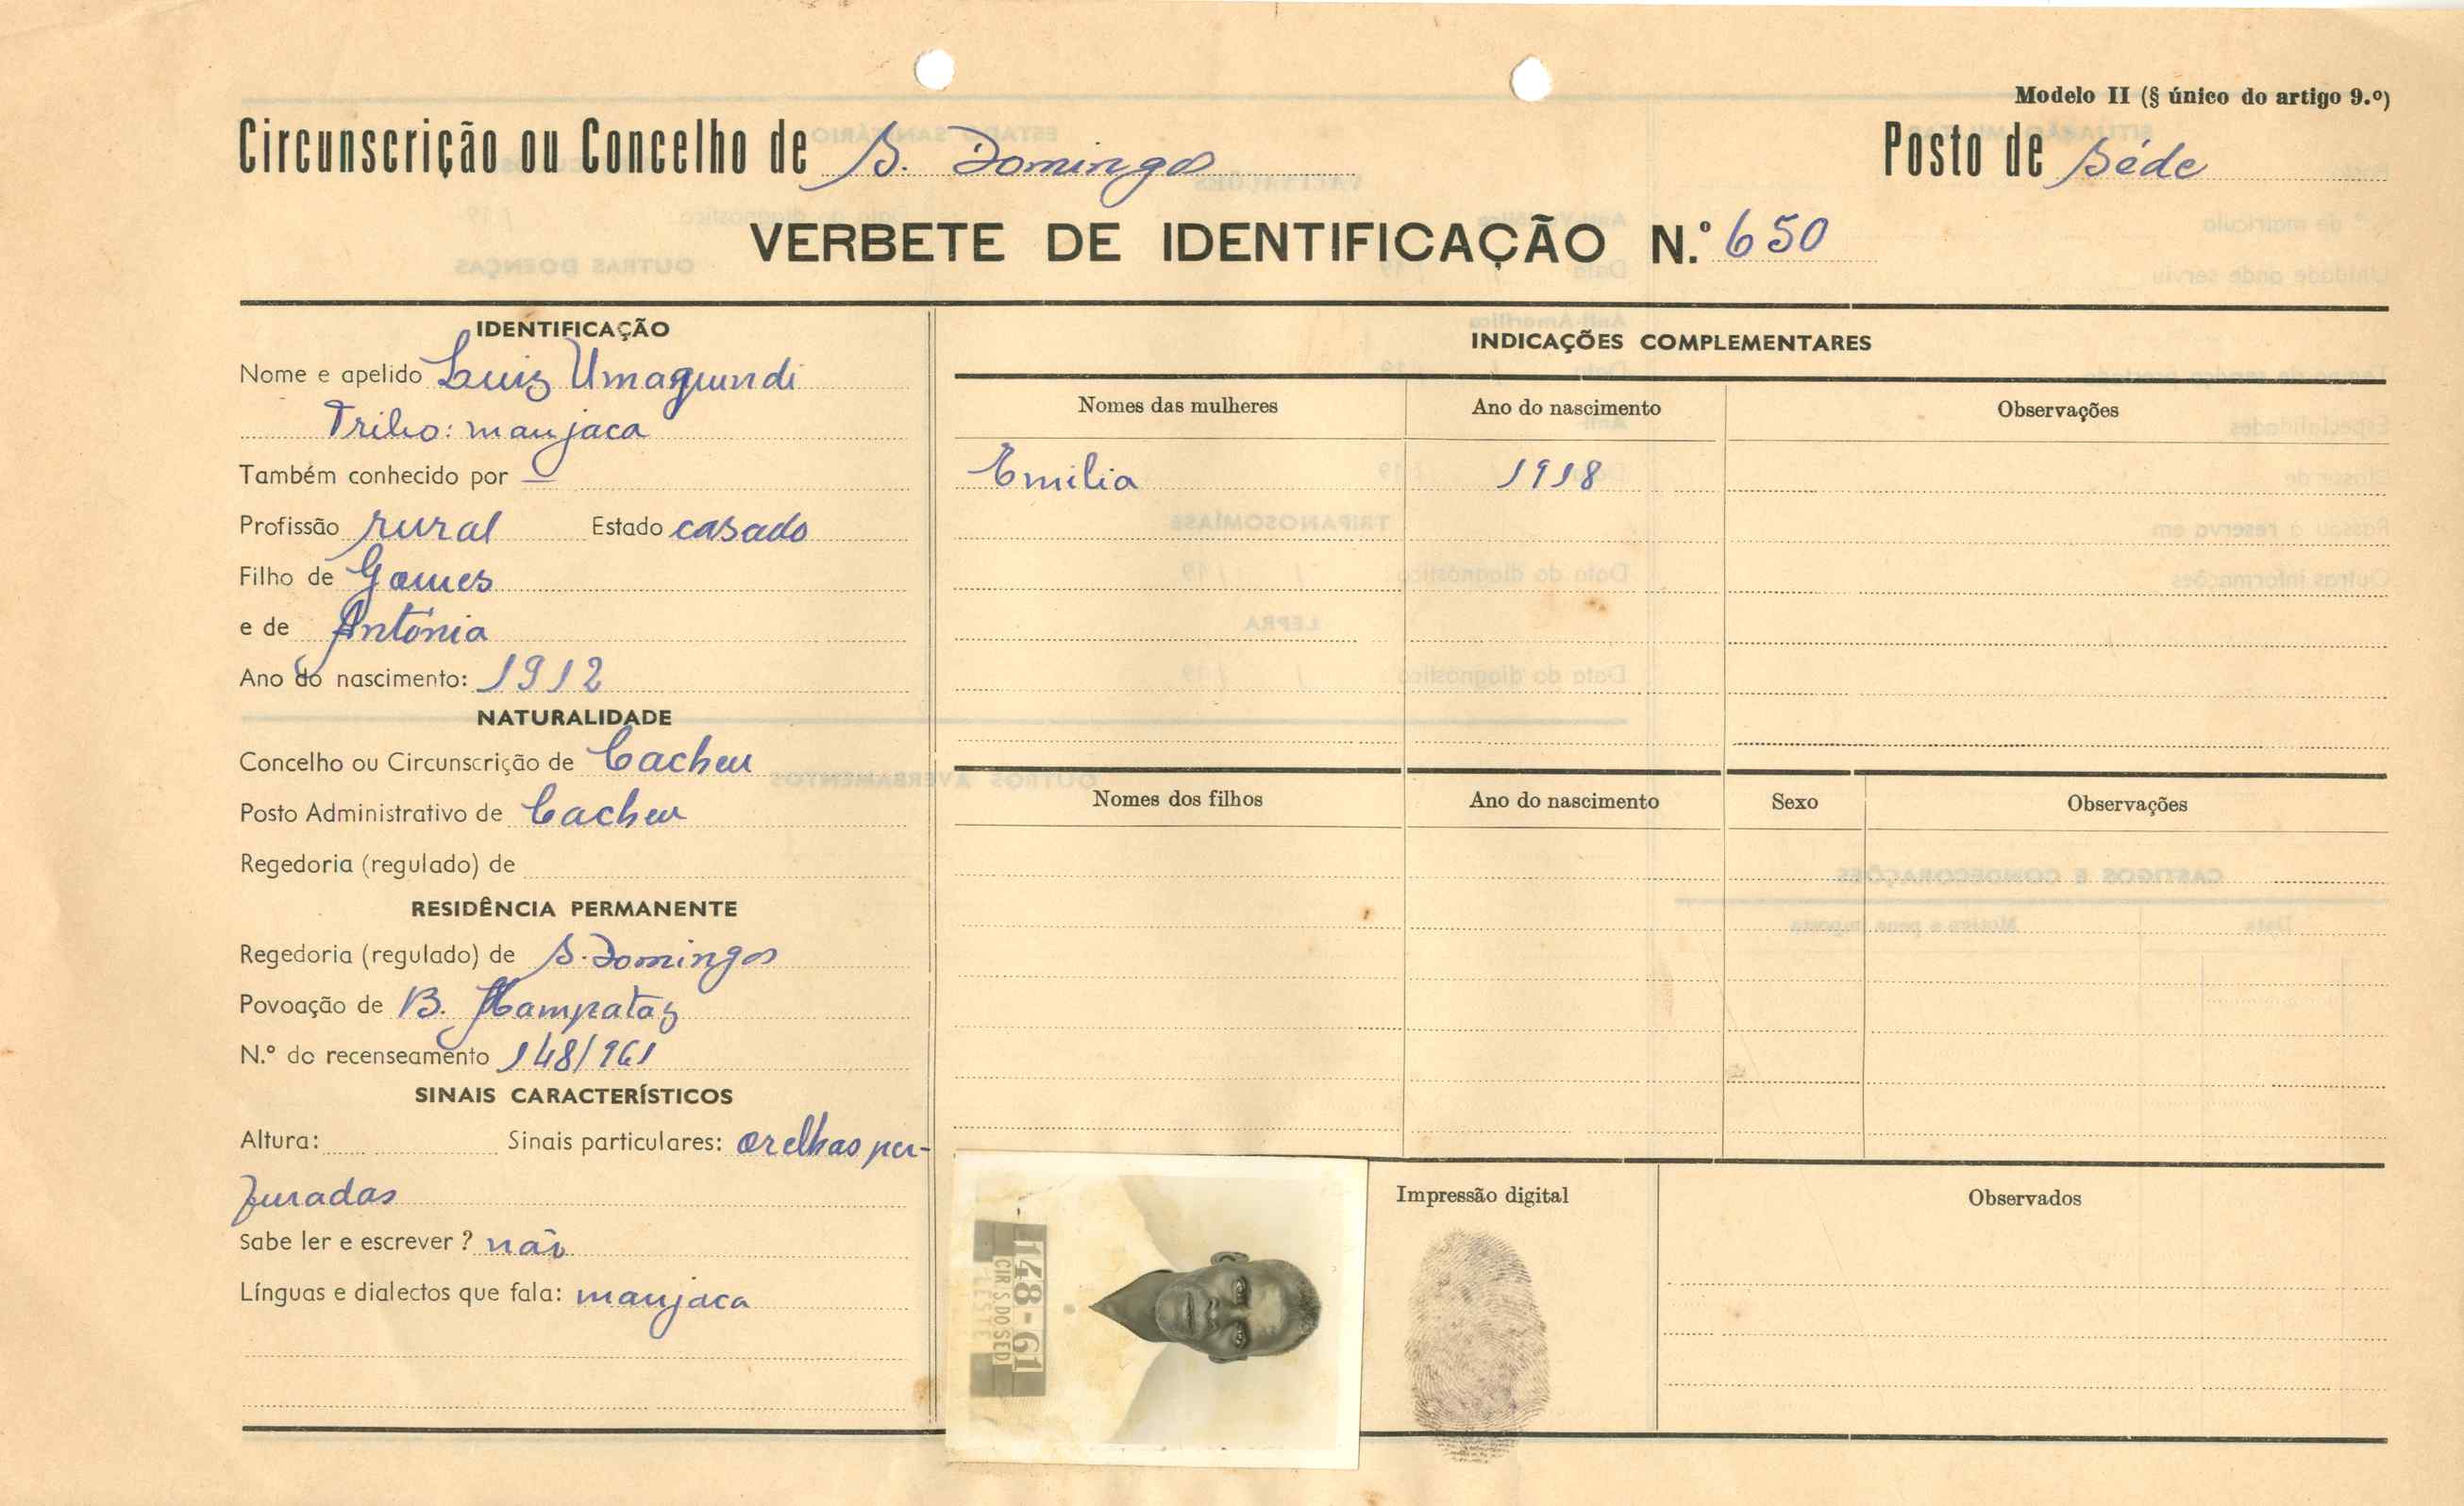 Modelo II (§ único do artigo 9.º)
Circunscrição ou Concelho de S. Domingos Posto de Séde
VERBETE DE IDENTIFICAÇÃO N.º 650
IDENTIFICAÇÃO
Nome e apelido Luiz Umagundi
Tribo: manjaca
Também conhecido por —
Profissão rural Estado casado
Filho de Gomes
e de Antónia
Ano do nascimento: 1912
NATURALIDADE
Concelho ou Circunscrição de Cacheu
Posto Administrativo de Cacheu
Regedoria (regulado) de
RESIDÊNCIA PERMANENTE
Regedoria (regulado) de S. Domingos
Povoação de B.
N.º do recenseamento 148/961
SINAIS CARACTERÍSTICOS
Altura: Sinais particulares: orelhas per-
furadas
Sabe ler e escrever? não
Línguas e dialectos que fala: manjaca
INDICAÇÕES COMPLEMENTARES
Nomes das mulheres Ano do nascimento Observações
Emilia 1918
Nomes dos filhos Ano do nascimento Sexo Observações
148-61
CIR.S.DO SED
LESTE
Impressão digital
Observados